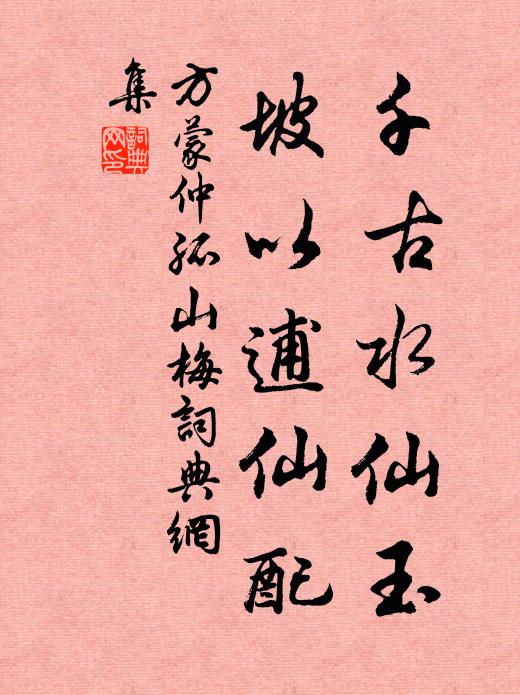 千古水仙玉
坡以逋仙配
方蒙仲孤山梅詞典網
集
詞典網印